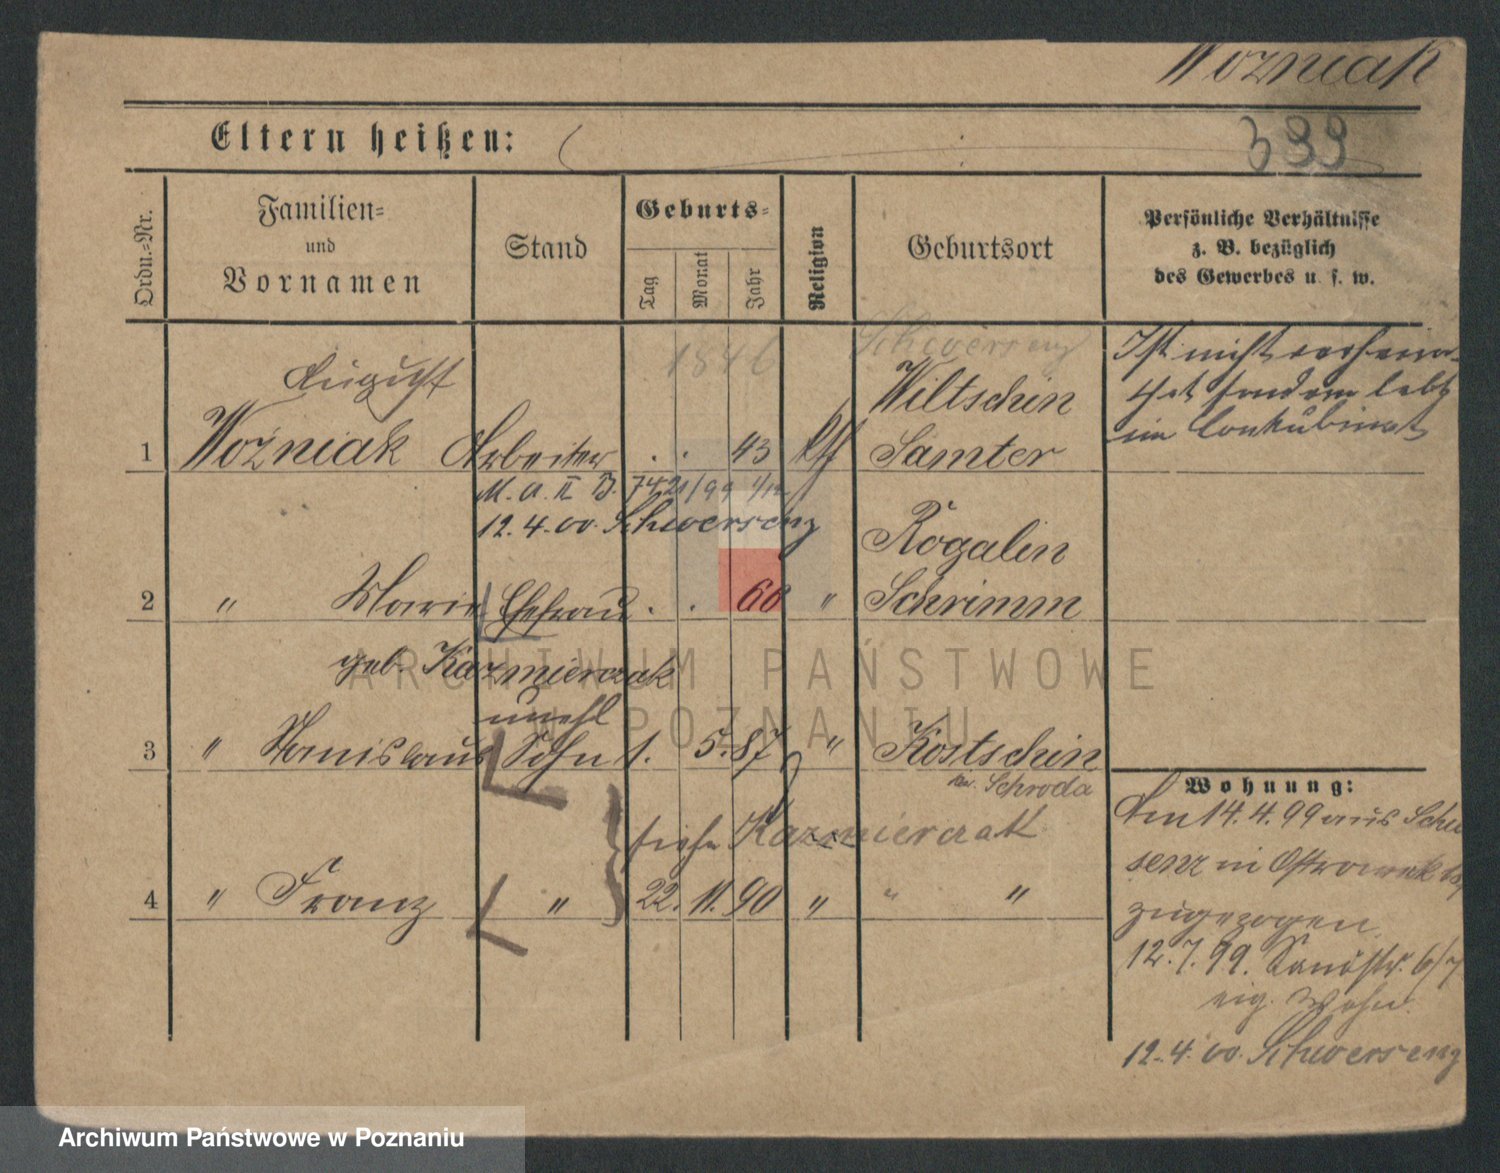 Woźniak
Eltern heißen:
399
Ordn.=Nr.
Familien=
und
Vornamen
Stand
Geburts=
Tag
Monat
Jahr
Religion
Geburtsort
Persönliche Verhältnisse
z. B. bezüglich
des Gewerbes u. s. w.
1846
Schwersenz
Ist nicht verheira-
thet sondern lebt
im Conkubinat
August
Wiltschin
1 Woźniak Arbeiter . . 43 kth Samter
M. A. II B. 7421/99
12.4.00. Schwersenz
Rogalin
2 " Marie Ehefrau . . 60 " Schrimm
geb. Kazmierczak
unehl
3 " Stanislaus Sohn 1. 5. 87 " Kostschin
Kr. Schroda
siehe Kazmierczak
4 " Franz " 22. 11. 90 " " "
Wohnung:
Am 14.4.99 aus
senz in Ostrowek
zugezogen.
12.7.99. Sandstr. 6/7
eig. Wohn.
12.4.00. Schwersenz
ARCHIWUM PAŃSTWOWE
W POZNANIU
Archiwum Państwowe w Poznaniu